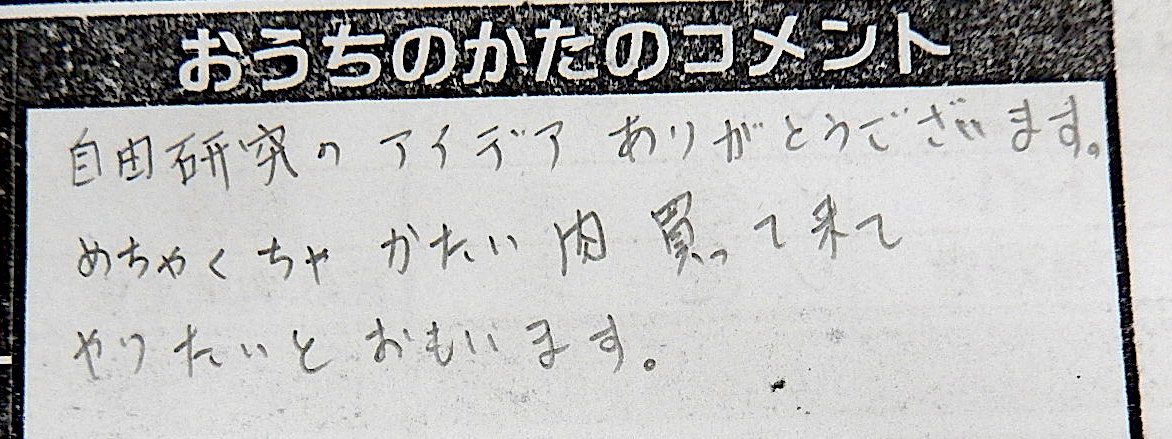 おうちのかたのコメント
自由研究の アイデア ありがとうございます。
めちゃくちゃ かたい 肉 買って来て
やりたいと おもいます。